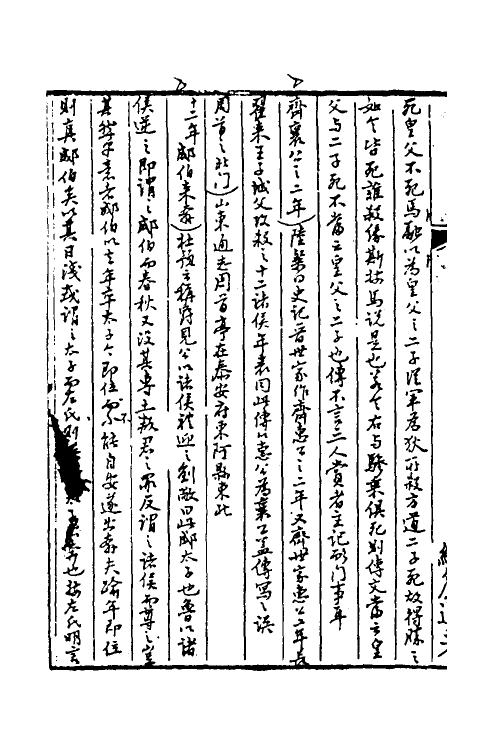 死皇父不死馬融以為皇父之二子從軍為敌所殺方道二子死故得勝之
如今皆死誰殺緣斯按馬説是也若云右与驂乘俱死則傳文當云皇
父与二子死不當云皇父之二子也傳不言二人賞者主記耏门事耳
齊襄公之二年）陸粲曰史记晋世家作齊惠公之二年又齊世家惠公二年長
翟来王子城父攻殺之十二诸侯年表同此傳以惠公為襄公蓋傳寫之误
周首之北门）山東通志周首亭在泰安府東阿縣東北
十二年郕伯来奔）杜預云稱爵見公以诸侯禮迎之劉敞曰此郕太子也魯以诸
侯逆之即謂之郕伯而春秋又没其專土叛君之罪反謂之诸侯而尊之豈
其然乎意者郕伯以去年卒太子今即位而不能自安遂出奔夫踰年即位
則真郕伯矣以其日淺或謂之太子而左氏則也按左氏明言